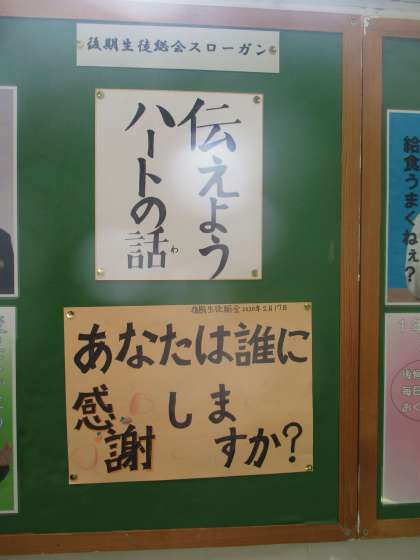 後期生徒総会スローガン
伝えよう
ハートの話
わ
後期生徒総会 2020年2月17日
あなたは誰に
感謝しま
すか?
給食うまくねぇ?
後悔
毎日
おく